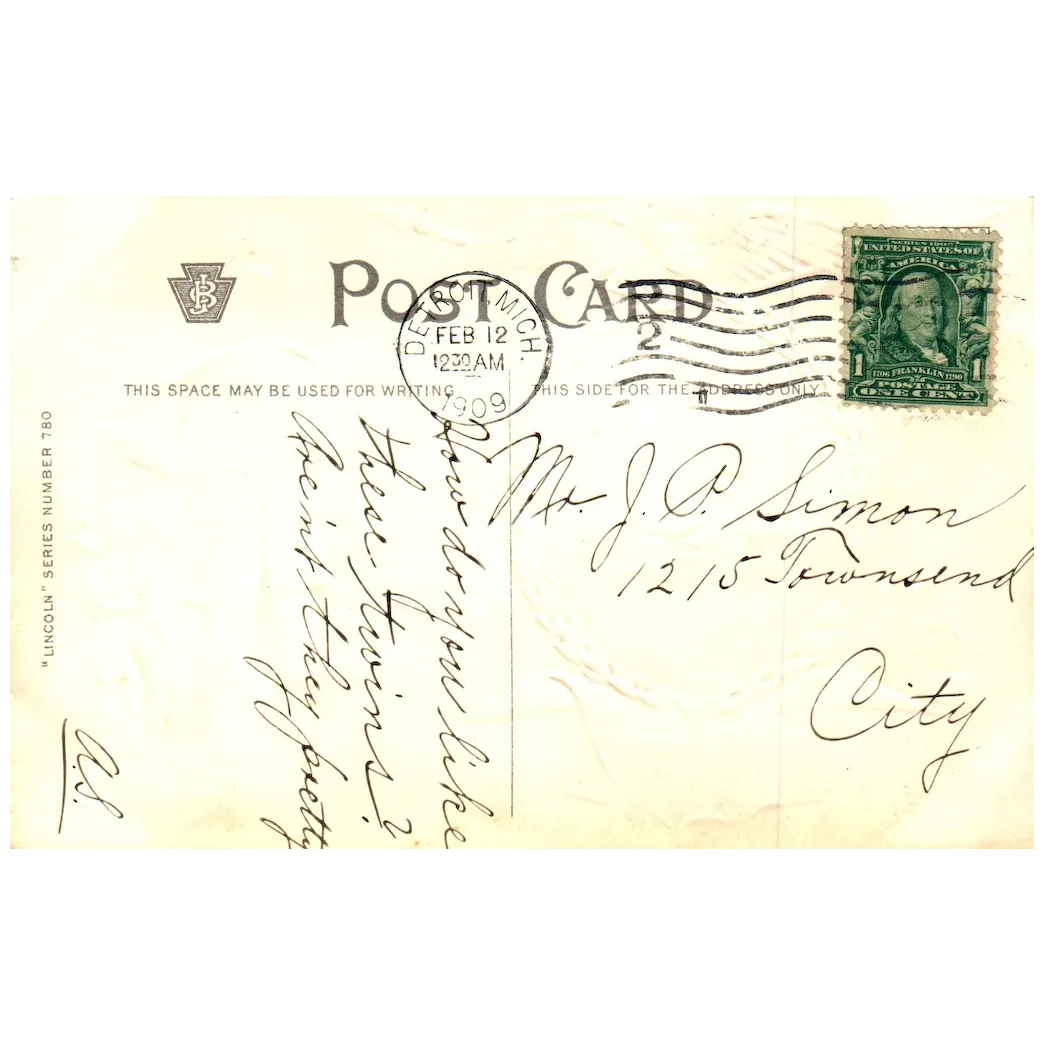 POST CARD
DETROIT, MICH.
FEB 12
12 30 AM
1909
2
SERIES 1902
UNITED STATES OF
AMERICA
1706 FRANKLIN 1790
1 POSTAGE 1
ONE CENT
THIS SPACE MAY BE USED FOR WRITING
THIS SIDE FOR THE ADDRESS ONLY
"LINCOLN" SERIES NUMBER 780
How do you like
these twins?
Are'nt they pretty
A.S.
Mr. J. P. Simon
1215 Townsend
City